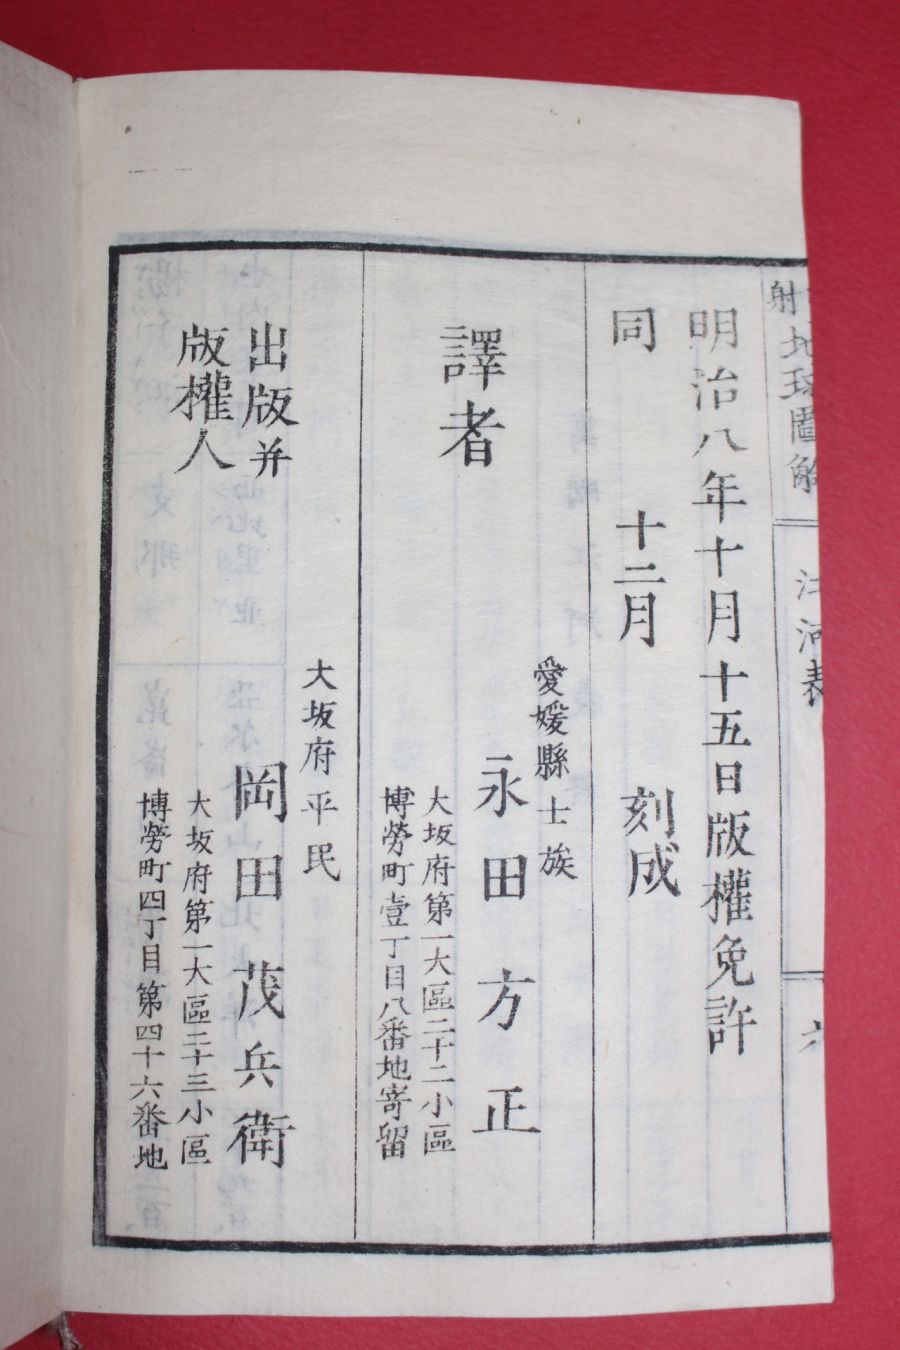 射地球圖解
江河表
明治八年十月十五日版權免許
同 十二月 刻成
愛媛縣士族
譯者 永田方正
大坂府第一大區二十二小區
博勞町壹丁目八番地寄留
大坂府平民
出版并 岡田茂兵衛
版權人
大坂府第一大區二十三小區
博勞町四丁目第四十六番地